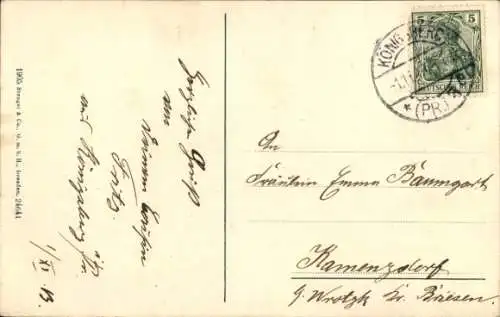 1905 Stengel & Co., G. m. b. H., Dresden. 24641
Herzliche Gruß
von
Deinem
Fritz.
aus Königsberg
1/XI 13.
KÖNIGSBERG
(PR.)
5 5
DEUTSCHES REICH
An
Fräulein Emma Baumgart
Kamenzdorf
p. Wrotzk Kr. Briesen.